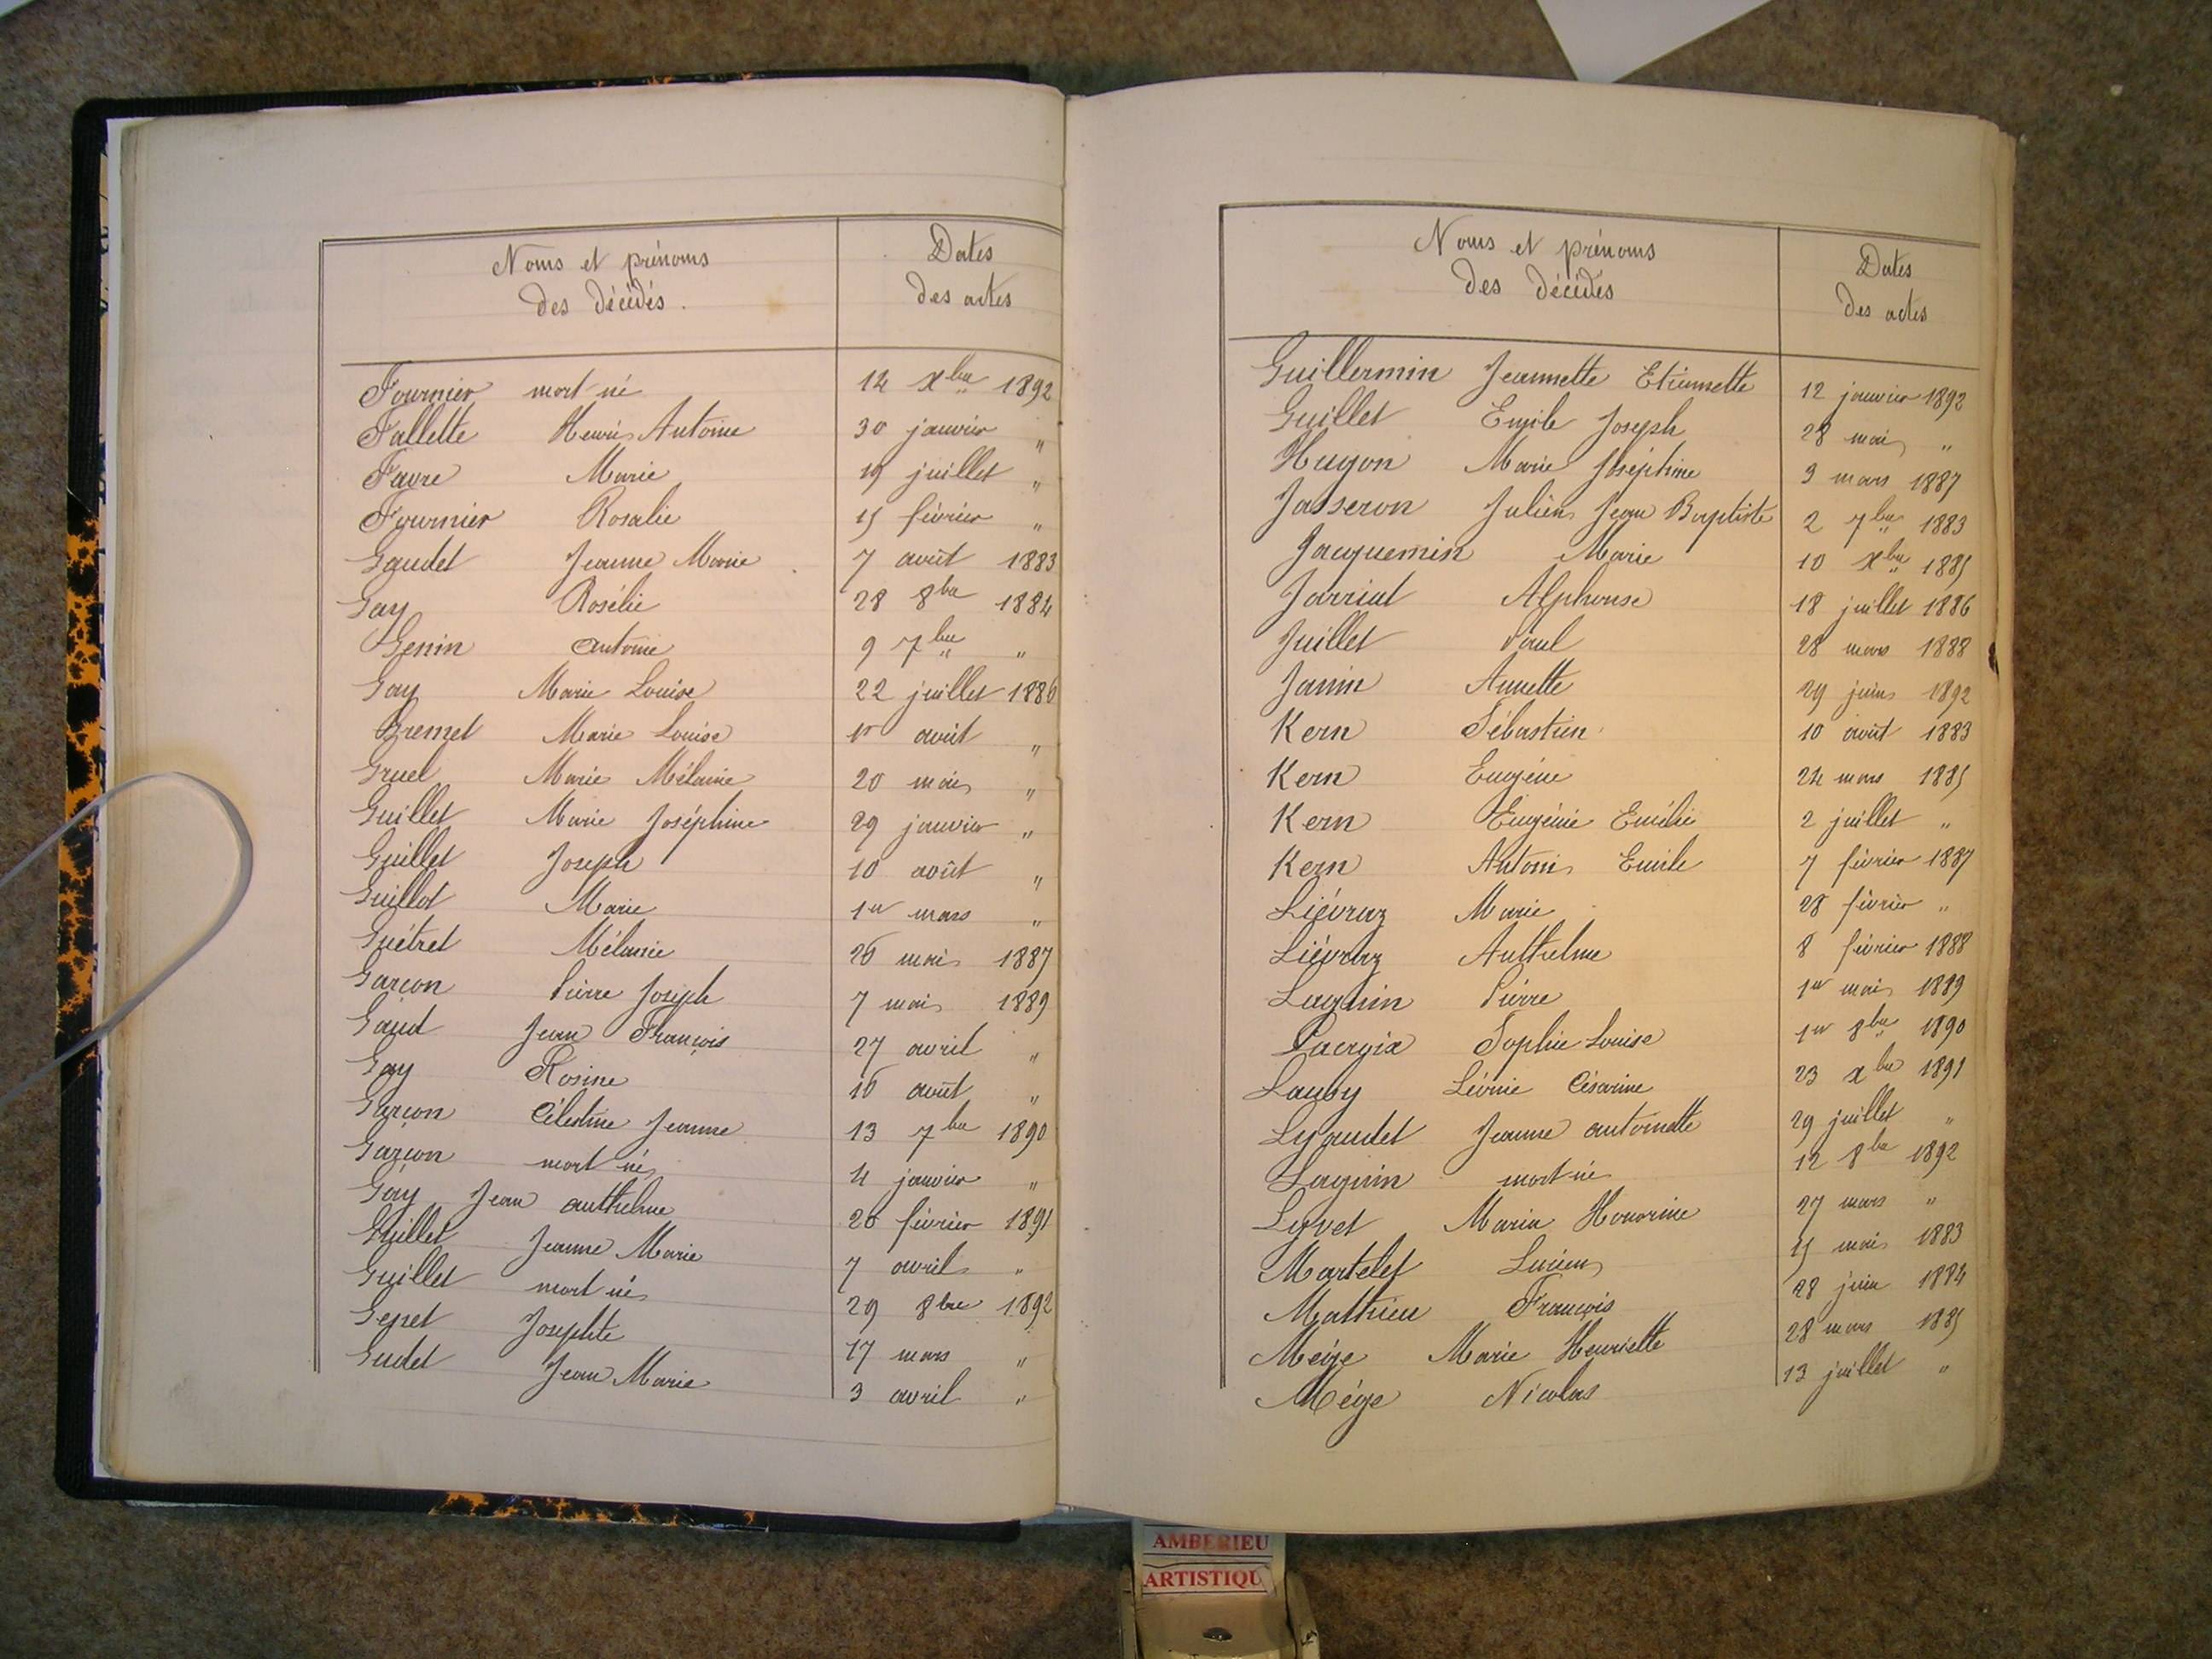 Noms et prénoms
des décédés.
Dates
des actes
Fournier mort-né 14 Xbre 1892
Fallette Henri Antoine 30 janvier "
Favre Marie 19 juillet "
Fournier Rosalie 15 février "
Gaudet Jeanne Marie 7 août 1883
Gay Rosélie 28 8bre 1884
Genin Antoine 9 7bre "
Gay Marie Louise 22 juillet 1886
Gremet Marie Louise août "
Gruel Marie Mélanie 20 mai "
Guillet Marie Joséphine 29 janvier "
Guillet Joseph 10 août "
Guillot Marie 1er mars "
Guétret Mélanie 26 mai 1887
Garcon Pierre Joseph 7 mai 1889
Gaud Jean François 27 avril "
Gay Rosine 16 août "
Garcon Célestine Jeanne 13 7bre 1890
Garçon mort né 4 janvier "
Gay Jean Anthelme 26 février 1891
Guillet Jeanne Marie 7 avril "
Guillet mort né 29 8bre 1892
Genet Josephte 17 mars "
Gudet Jean Marie 3 avril "
Noms et prénoms
des décédés
Dates
des actes
Guillermin Jeannette Etiennette 12 janvier 1892
Guillet Emile Joseph 28 mai "
Hugon Marie Joséphine 3 mars 1887
Jasseron Julien Jean Baptiste 2 7bre 1883
Jacquemin Marie 10 Xbre 1885
Jarriat Alphonse 18 juillet 1886
Juillet Paul 28 mars 1888
Janin Annette 29 juin 1892
Kern Sébastien 10 août 1883
Kern Eugène 24 mars 1885
Kern Eugénie Emélie 2 juillet "
Kern Antoine Emile 7 février 1887
Liévraz Marie 28 février "
Liévraz Anthelme 8 février 1888
Laguin Pierre 1er mai 1889
Lacroix Sophie Louise 1er 8bre 1890
Lauby Léonie Césarine 23 Xbre 1891
Lyaudet Jeanne Antoinette 29 juillet "
Laguin mort-né 12 8bre 1892
Lyvet Maria Honorine 27 mars "
Martelet Lucien 15 mai 1883
Mathieu François 28 juin 1884
Meige Marie Henriette 28 mars 1885
Mège Nicolas 13 juillet "
AMBERIEU
ARTISTIQU